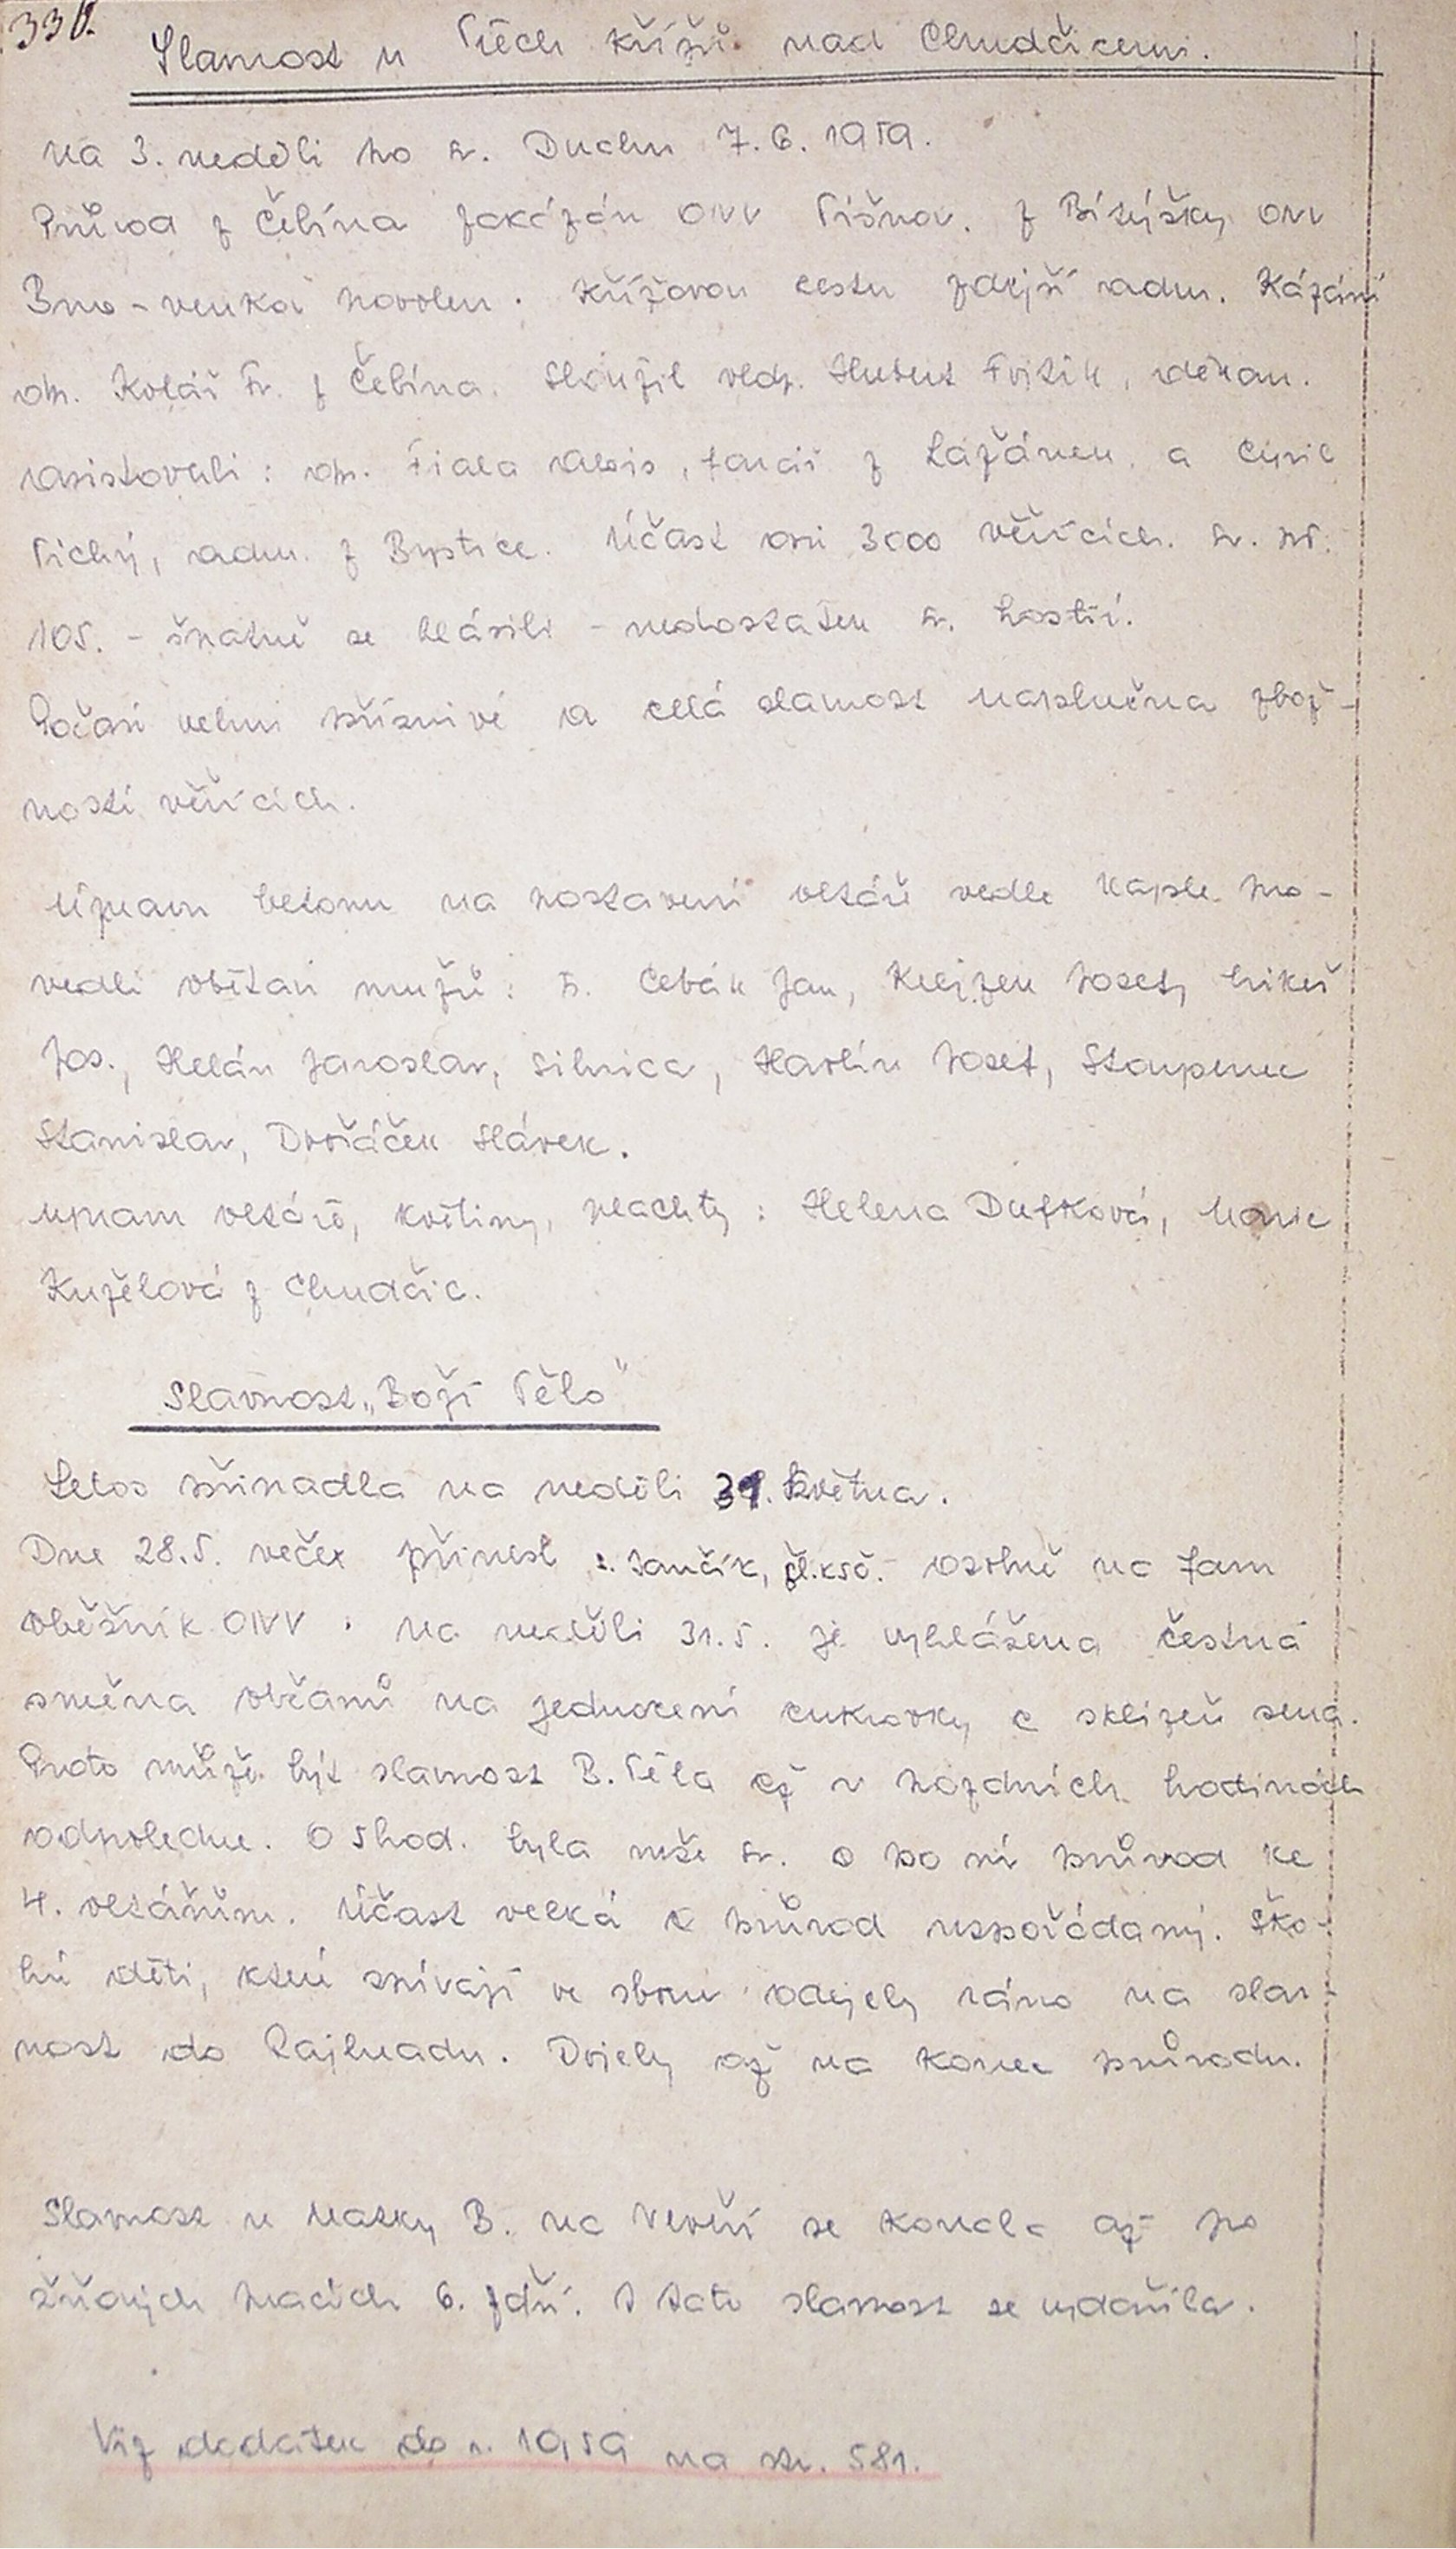 330.
Slavnost u Třech Křížů nad Chudčicemi.
Na 3. neděli po sv. Duchu 7. 6. 1959.
Průvod z Čebína zakázán ONV Tišnov. z Bítýšky ONV
Brno-venkov povolen. Křížovou cestu zdejší adm. Kázání
dp. Kolář Fr. z Čebína. Sloužil vldp. Hubert Fritih, děkan.
asistovali: dp. Fiala Alois, farář z Lažánek a Cyril
Tichý, adm. z Bystrce. Účast asi 3000 věřících. sv. př.
105. - špatně se hlásili - nedostatek sv. hostií.
Počasí velmi příznivé a celá slavnost naplněna zbož-
ností věřících.
Úpravu betonu na postavení oltáře vedle kaple pro-
vedli obětaví mužů: Fr. Cebák Jan, Klejzek Josef, Mikeš
Jos., Helán Jaroslav, Silnica, Havlín Josef, Stoupenec
Stanislav, Dvořáček Slávek.
úpravu oltáře, květiny, plachty: Helena Dufková, Marie
Kuželová z Chudčic.
Slavnost „Boží Tělo"
Letos připadla na neděli 31. května.
Dne 28.5. večer přinesl s. Jančík, čl. ksč. osobně na faru
oběžník ONV. na neděli 31.5. je vyhlášena čestná
směna občanů na jednocení cukrovky a sklizeň sena.
Proto může být slavnost B. Těla až v pozdních hodinách
odpoledne. O 5 hod. byla mše sv. a po ní průvod ke
4. oltářům. Účast velká a průvod uspořádaný. Ško-
lní děti, které zpívají ve sboru odejely ráno na slav-
nost do Rajhradu. Dojely až na konec průvodu.
Slavnost u Matky B. na Veveří se konala až po
žňových pracích 6. září. I tato slavnost se vydařila.
Viz dodatek do r. 1959 na str. 581.